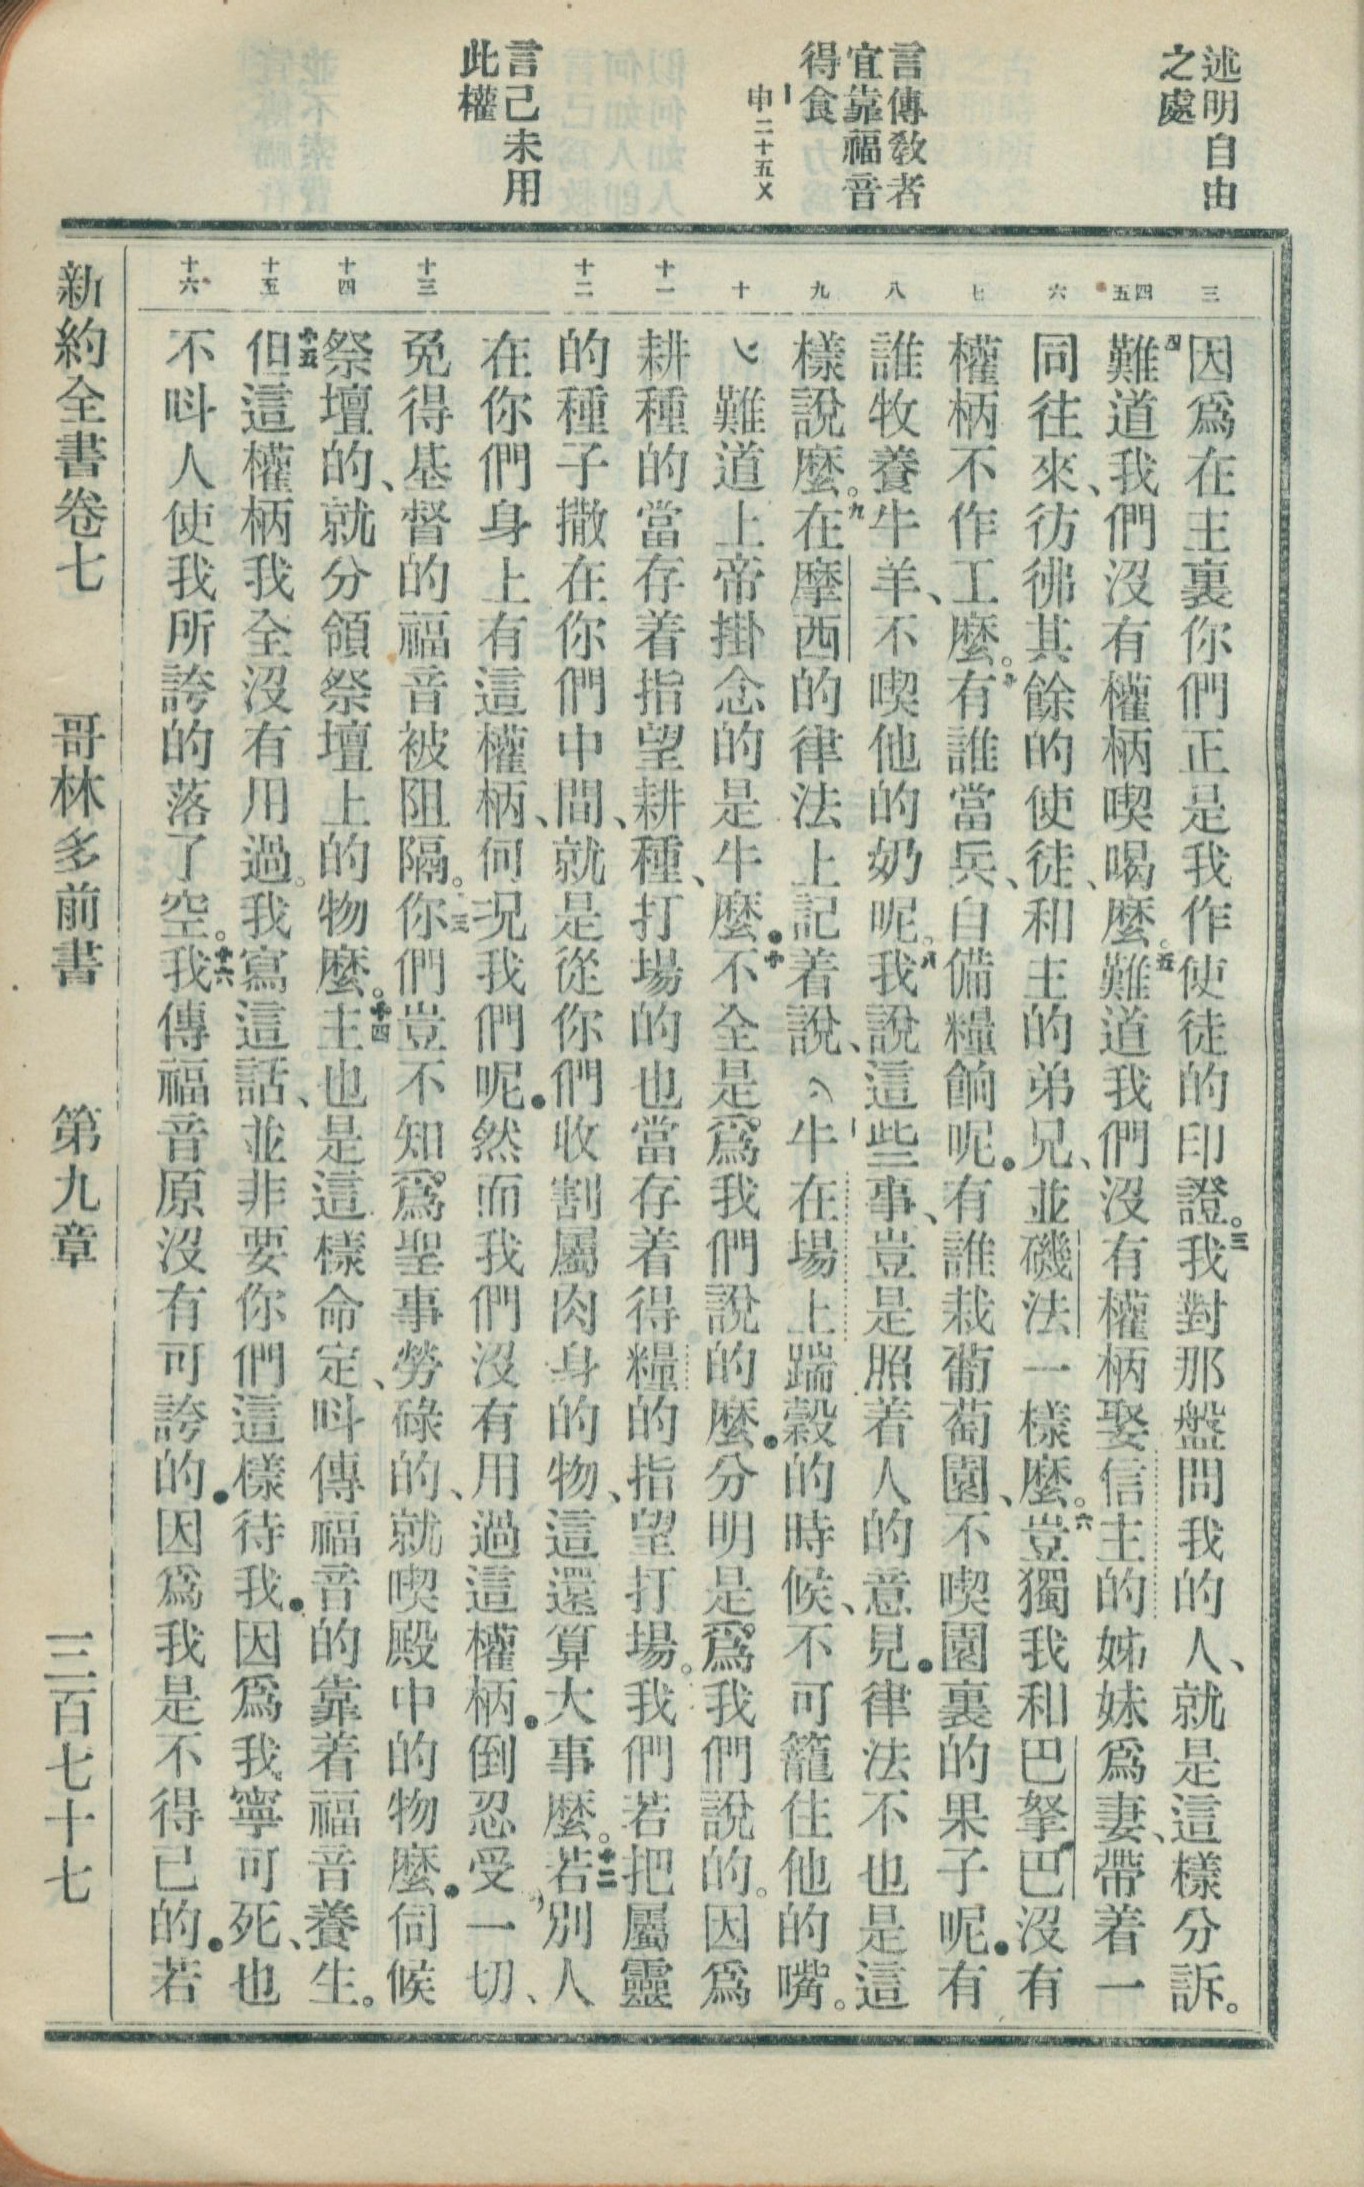 述明自由
之處
言傳教者
宜靠福音
得食
申二十五 乂
言己未用
此權
三
四
五
六
七
八
九
十
十一
十二
十三
十四
十五
十六
因爲在主裏你們正是我作使徒的印證。三我對那盤問我的人、就是這樣分訴。
四難道我們沒有權柄喫喝麼。五難道我們沒有權柄娶信主的姊妹爲妻、帶着一
同往來、彷彿其餘的使徒、和主的弟兄、並磯法一樣麼。六豈獨我和巴拏巴沒有
權柄不作工麼。七有誰當兵、自備糧餉呢．有誰栽葡萄園、不喫園裏的果子呢．有
誰牧養牛羊、不喫他的奶呢。八我說這些事、豈是照着人的意見．律法不也是這
樣說麼。九在摩西的律法上記着說、牛在場上踹穀的時候、不可籠住他的嘴。
難道上帝掛念的是牛麼．十不全是爲我們說的麼．分明是爲我們說的。因爲
耕種的當存着指望耕種、打場的也當存着得糧的指望打場。我們若把屬靈
的種子撒在你們中間、就是從你們收割屬肉身的物、這還算大事麼。十二若別人
在你們身上有這權柄、何況我們呢．然而我們沒有用過這權柄．倒忍受一切、
免得基督的福音被阻隔。三你們豈不知爲聖事勞碌的、就喫殿中的物麼．伺候
祭壇的、就分領祭壇上的物麼。十四主也是這樣命定、呌傳福音的靠着福音養生。
十五但這權柄我全沒有用過。我寫這話、並非要你們這樣待我．因爲我寧可死、也
不呌人使我所誇的落了空。十六我傳福音原沒有可誇的．因爲我是不得已的．若
新約全書卷七 哥林多前書 第九章 三百七十七